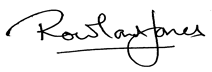 Rowland Jones